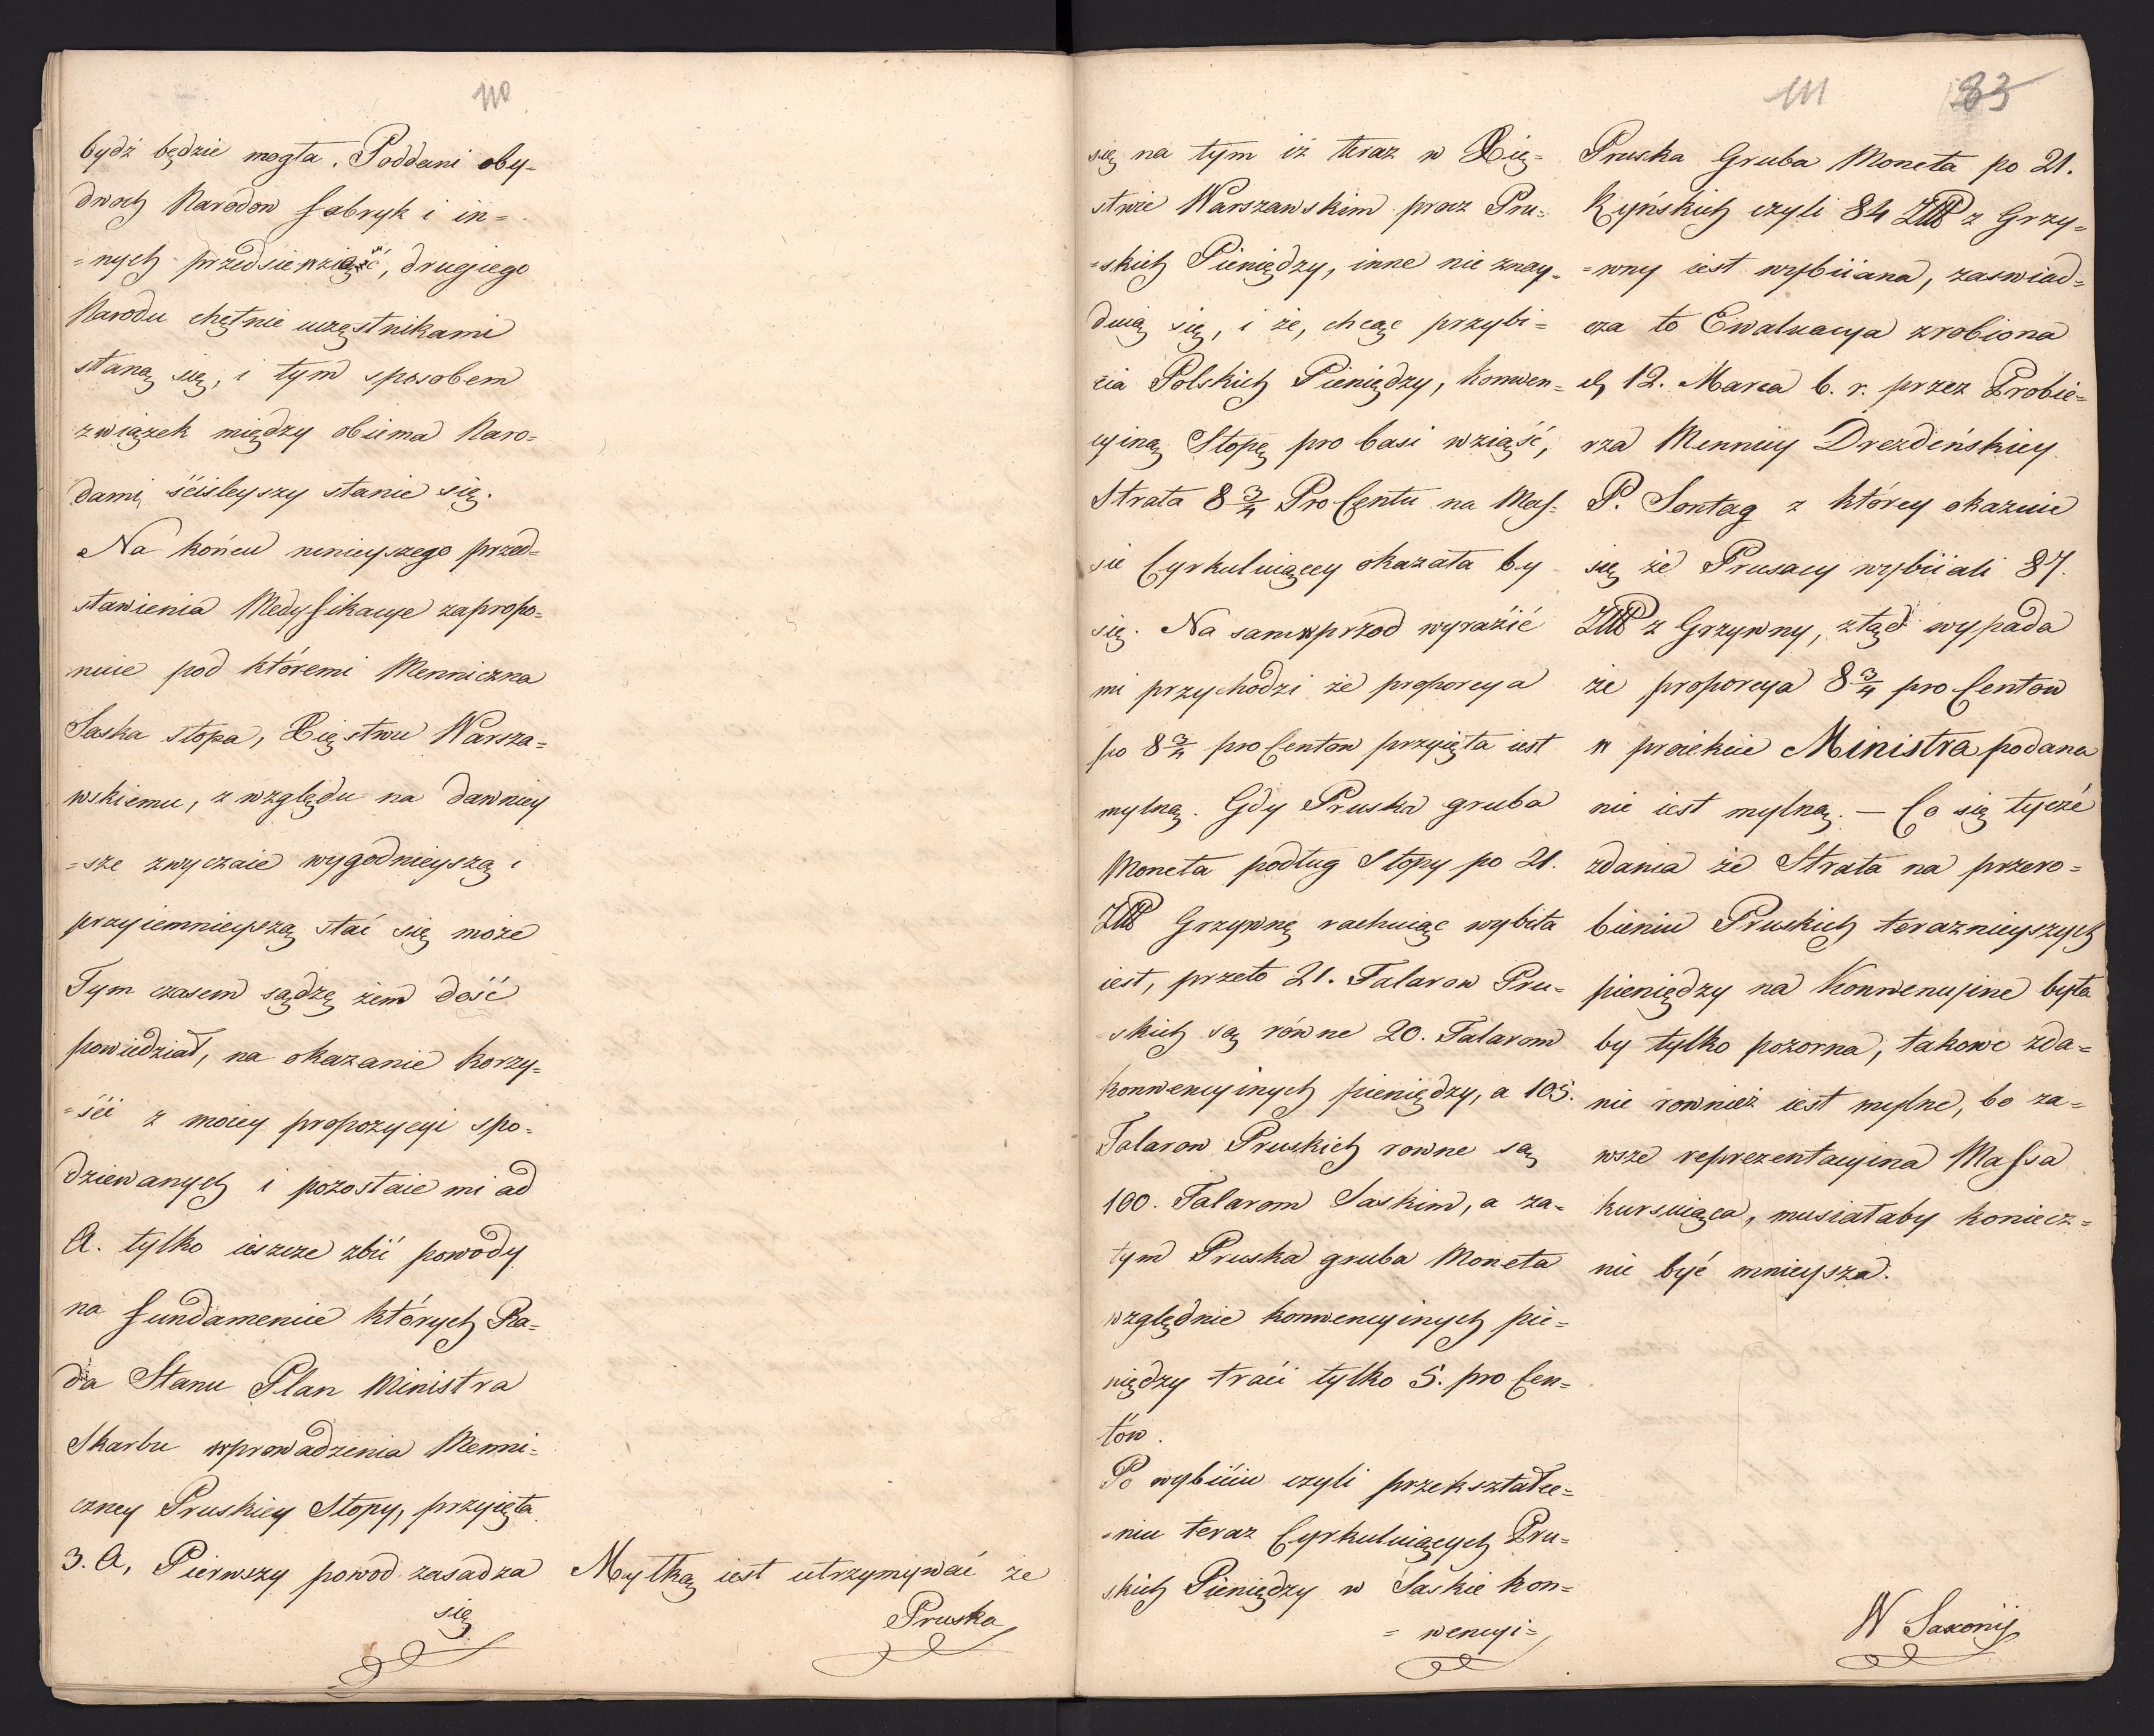 110
bydź będzie mogła. Poddani oby-
dwoch Narodow fabryk i in=
=nych przedsiewzięć, drugiego
Narodu chętnie uczęstnikami
staną się, i tym sposobem
związek między obiema Naro=
dami, ściśleyszy stanie się.
Na końcu ninieyszego przed=
stawienia Modyfikacye zapropo=
nuie pod któremi Menniczna
Saska stopa, Xięstwu Warsza=
wskiemu, z względu na dawniey
=sze zwyczaie wygodnieyszą i
przyiemnieyszą stać się może
Tym czasem sądzę żem dość
powiedział, na okazanie korzy=
=ści z moiey propozycyi spo=
dziewanych i pozostaie mi ad
A. tylko ieszcze zbić powody
na fundamencie których Ra=
da Stanu Plan Ministra
Skarbu wprowadzenia Menni=
czney Pruskiey Stopy, przyięta.
3. A, Pierwszy powod zasadza
się
Myłką iest utrzymywać że
Pruska
111 83
się na tym iż teraz w Xię=
stwie Warszawskim procz Pru=
=skich Pieniędzy, inne nie znay-
duią się, i że, chcąc przybi=
cia Polskich Pieniędzy, konwen=
cyiną Stopę pro basi wziąść,
Strata 8 3/4 Pro Centu na Mas=
sie Cyrkuluiącey okazała by
się. Na samwprzod wyrazić
mi przychodzi że proporcya
po 8 3/4 pro Centow przyięta iest
mylną. Gdy Pruska gruba
Moneta podług Stopy po 21.
ZłP Grzywnę rachuiąc wybita
iest, przeto 21. Talarow Pru=
=skich są równe 20. Talarom
konwencyinych pieniędzy, a 105.
Talarow Pruskich rowne są
100. Talarom Saskim, a za=
tym Pruska gruba Moneta
względnie konwencyinych pie=
niędzy traci tylko 5. pro Cen=
tów.
Po wybiciu czyli przekształce=
=niu teraz Cyrkuluiących Pru=
skich Pieniędzy w Saskie kon=
= wencyi=
Pruska Gruba Moneta po 21.
Ryńskich czyli 84 ZłP z Grzy=
=wny iest wybiiana, zaswiad=
cza to Ewaluacya zrobiona
d, 12. Marca b. r. przez Probie=
rza Mennicy Drezdeńskiey
P. Sontag z którey okazuie
się że Prusacy wybiiali 87.
ZłP z Grzywny, ztąd wypada
że proporcya 8 3/4 pro Centow
w proiekcie Ministra podana
nie iest mylną. — Co się tycze
zdania że Strata na przero=
bieniu Pruskich teraznieyszych
pieniędzy na Konwencyine była
by tylko pozorna, takowe zda=
nie rownież iest mylne, bo za=
wsze reprezentacyina Massa
kursuiąca, musiałaby koniecz=
nie być mnieysza.
W Saxonij